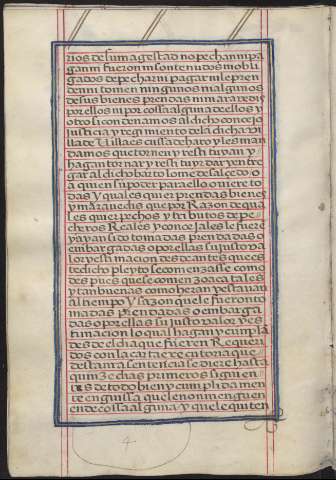 rios de su magestad no pechan ni pa
gan ni fueron ni son tenudos ni obli
gados de pechar ni pagar ni le pren
den ni tomen ningunos ni algunos
de sus bienes prendas ni maravedis
por ellos ni por cossa alguna de ellos y
otrosi condenamos al dicho concejo
justicia y regimiento de la dicha vi
lla de Villa escussa de haro y les man
damos que tornen y restituyan y
hagan tornar y restituyr dar y entre
gar al dicho bartolome de salçedo / o
a quien su poder para ello oviere to
das y quales quier prendas bienes
y maravedis que por Razon de qua
les quier pechos y tributos de pe
cheros Reales y concejales le fuere
yayan sido tomadas prendadas o
embargadas o por ellas su justo va
lor y estimacion desde antes que es
te dicho pleyto se comenzasse como
despues que se comenzo aca tales
y tan buenas como heran y estavan
al tiempo y sazon que le fueron to
madas prendadas o embarga
das o por ellas su justo valor y es
timacion lo qual hagan y cumplā
desde el dia que fueren Requeri
dos con la carta executoria que
desta nuestra sentencia se diere hasta
quinze dias primeros siguien
tes de todo bien y cumplidamen
te en guissa que le non mengue
en de cossa alguna y que le quiten
4